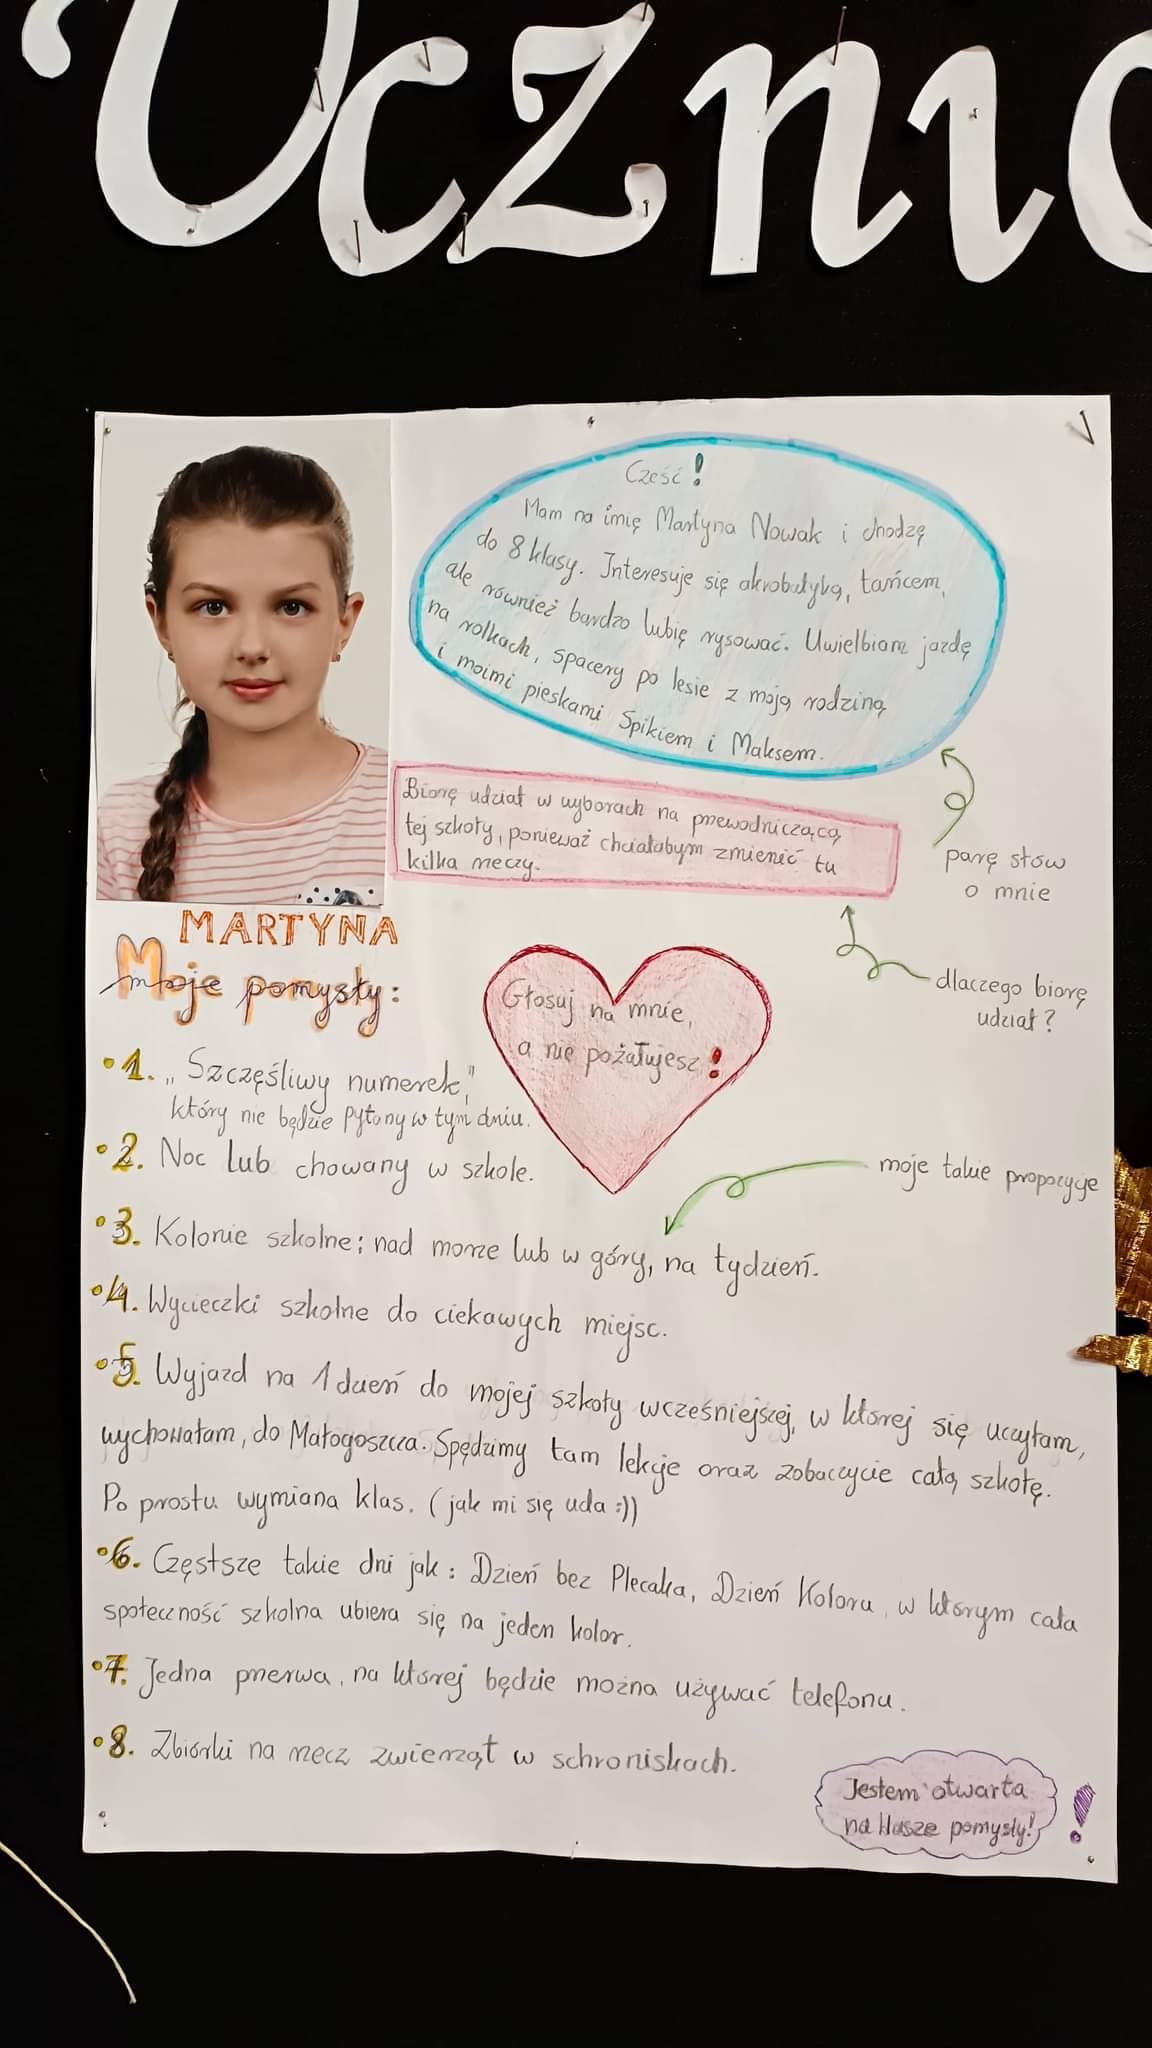 Ucznio
Cześć!
Mam na imię Martyna Nowak i chodzę
do 8 klasy. Interesuje się akrobatyką, tańcem,
ale również bardzo lubię rysować. Uwielbiam jazdę
na rolkach, spacery po lesie z moją rodziną
i moimi pieskami Spikiem i Maksem.
Biorę udział w wyborach na przewodniczącą
tej szkoły, ponieważ chciałabym zmienić tu
kilka rzeczy.
parę słów
o mnie
dlaczego biorę
udział?
MARTYNA
Moje pomysły:
Głosuj na mnie,
a nie pożałujesz!
•1. „Szczęśliwy numerek,"
który nie będzie pytany w tym dniu.
•2. Noc lub chowany w szkole.
moje takie propozycje
•3. Kolonie szkolne; nad morze lub w góry, na tydzień.
•4. Wycieczki szkolne do ciekawych miejsc.
•5. Wyjazd na 1 dzień do mojej szkoły wcześniejszej, w której się uczyłam,
wychowałam, do Małogoszcza. Spędzimy tam lekcje oraz zobaczycie całą szkołę.
Po prostu wymiana klas. (jak mi się uda :))
•6. Częstsze takie dni jak: Dzień bez Plecaka, Dzień Koloru, w którym cała
społeczność szkolna ubiera się na jeden kolor.
•7. Jedna przerwa, na której będzie można używać telefonu.
•8. Zbiórki na rzecz zwierząt w schroniskach.
Jestem otwarta
na Wasze pomysły!
!